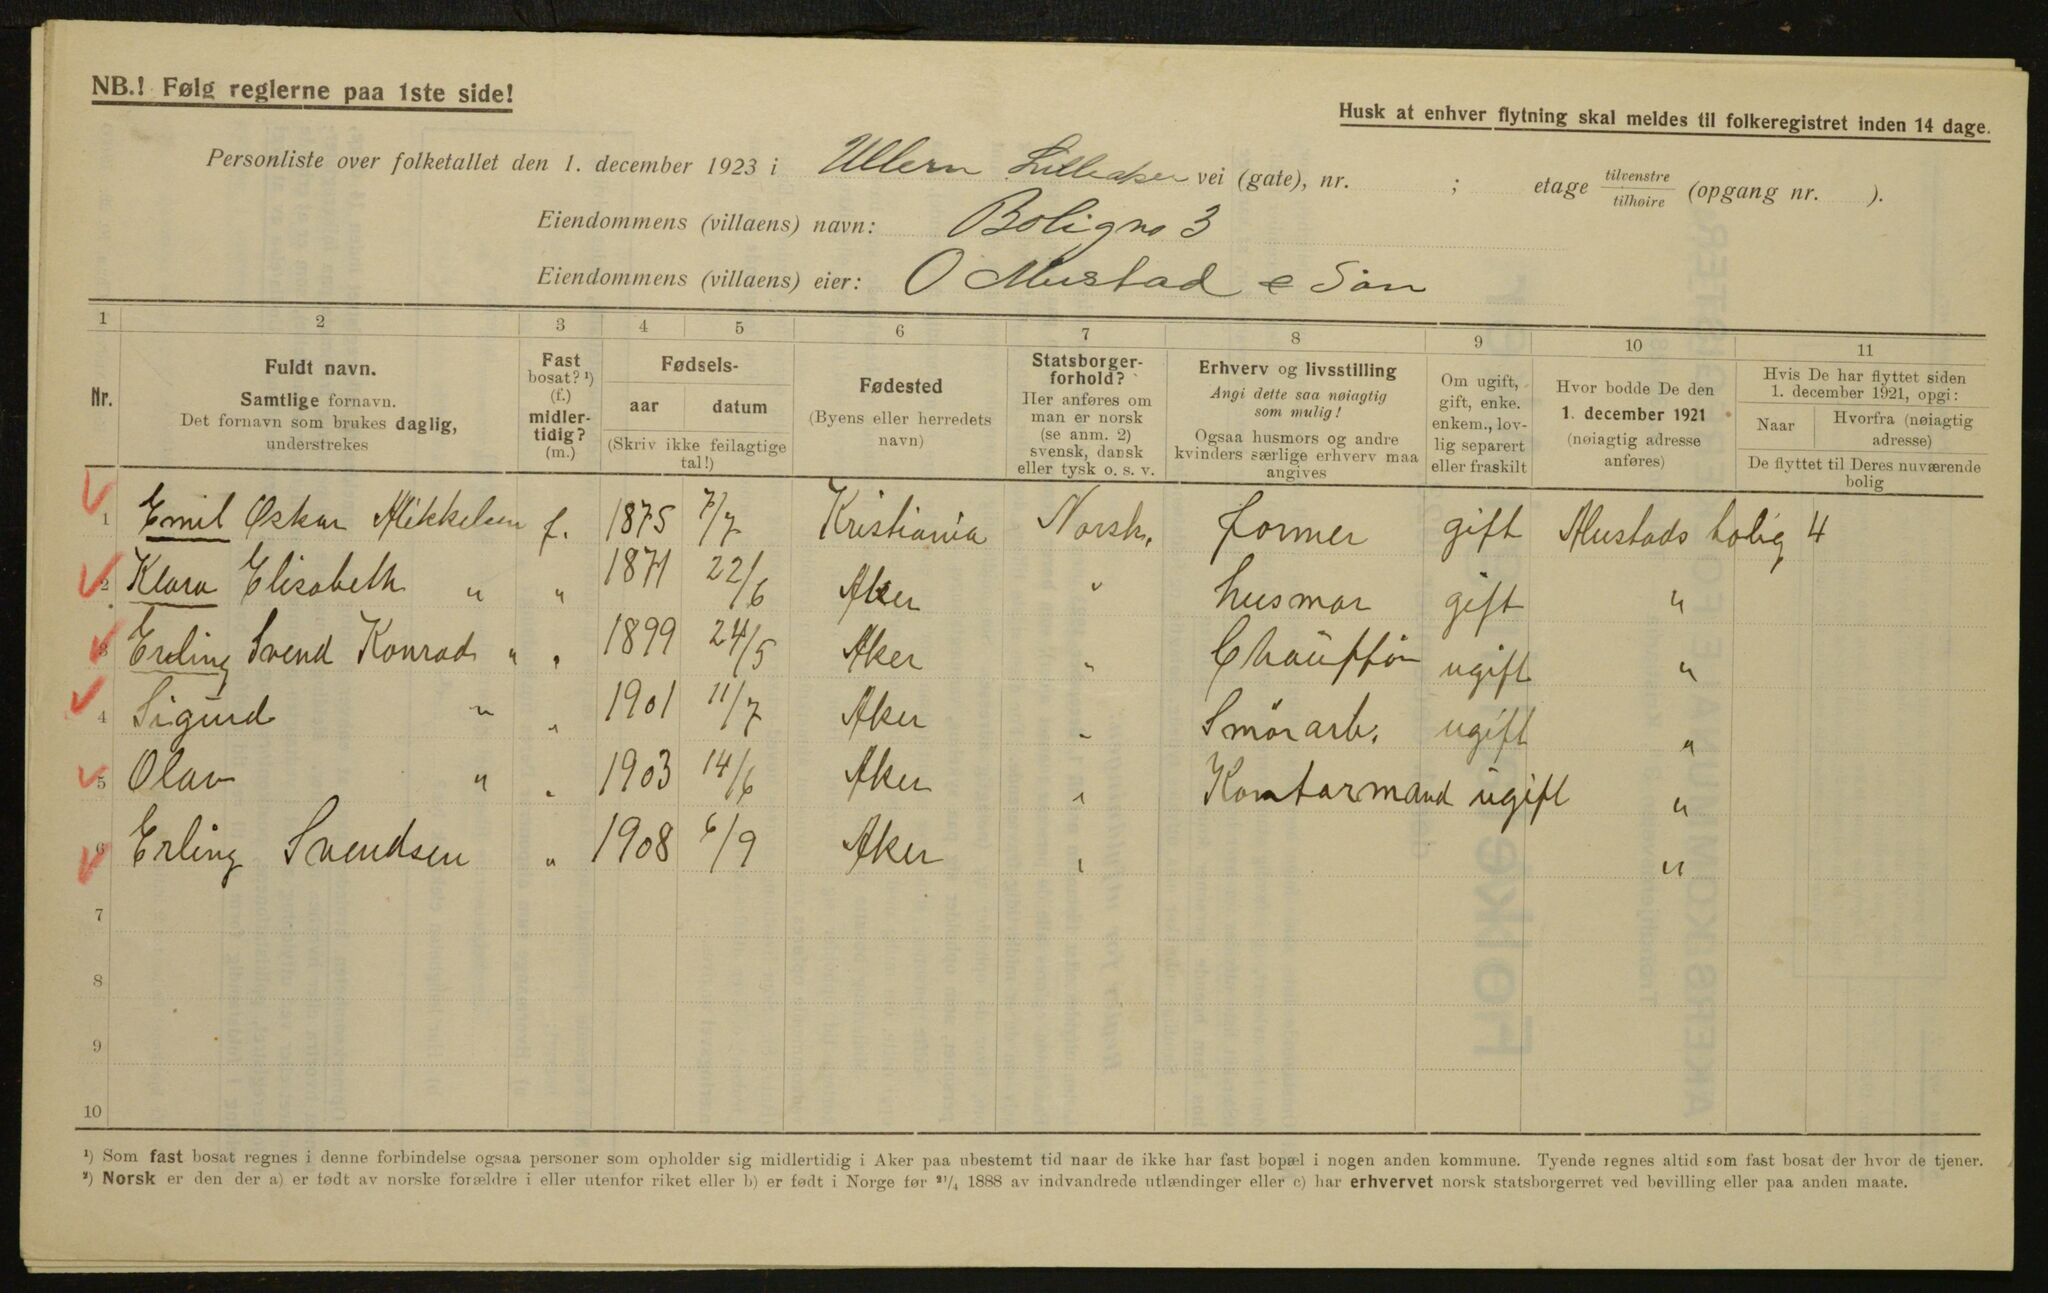 NB.! Følg reglerne paa 1ste side!
Husk at enhver flytning skal meldes til folkeregistret inden 14 dage.
Personliste over folketallet den 1. december 1923 i Ullern Lilleaker vei (gate), nr. ; etage tilvenstre/tilhøire (opgang nr. ).
Eiendommens (villaens) navn: Bolig no 3
Eiendommens (villaens) eier: O Mustad & Søn
1 2 3 4 5 6 7 8 9 10 11
Nr. Fuldt navn. Samtlige fornavn. Det fornavn som brukes daglig, understrekes
Fast bosat? ¹) (f.) midlertidig? (m.)
Fødsels- aar datum (Skriv ikke feilagtige tal!)
Fødested (Byens eller herredets navn)
Statsborgerforhold? Her anføres om man er norsk (se anm. 2) svensk, dansk eller tysk o. s. v.
Erhverv og livsstilling Angi dette saa nøiagtig som mulig! Ogsaa husmors og andre kvinders særlige erhverv maa angives
Om ugift, gift, enke. enkem., lovlig separert eller fraskilt
Hvor bodde De den 1. december 1921 (nøiagtig adresse anføres)
Hvis De har flyttet siden 1. december 1921, opgi: Naar Hvorfra (nøiagtig adresse) De flyttet til Deres nuværende bolig
1 Emil Oskar Mikkelsen f. 1875 7/7 Kristiania Norsk. former gift Mustads bolig 4
2 Klara Elisabeth " " 1871 22/6 Aker " husmor gift "
3 Erling Svend Konrad " " 1899 24/5 Aker " Chauffør ugift "
4 Sigurd " " 1901 11/7 Aker " Smørarb. ugift "
5 Olav " " 1903 14/6 Aker " Kontormand ugift "
6 Erling Svendsen " 1908 6/9 Aker " "
7
8
9
10
¹) Som fast bosat regnes i denne forbindelse ogsaa personer som opholder sig midlertidig i Aker paa ubestemt tid naar de ikke har fast bopæl i nogen anden kommune. Tyende regnes altid som fast bosat der hvor de tjener.
²) Norsk er den der a) er født av norske forældre i eller utenfor riket eller b) er født i Norge før ²¹/₄ 1888 av indvandrede utlændinger eller c) har erhvervet norsk statsborgerret ved bevilling eller paa anden maate.